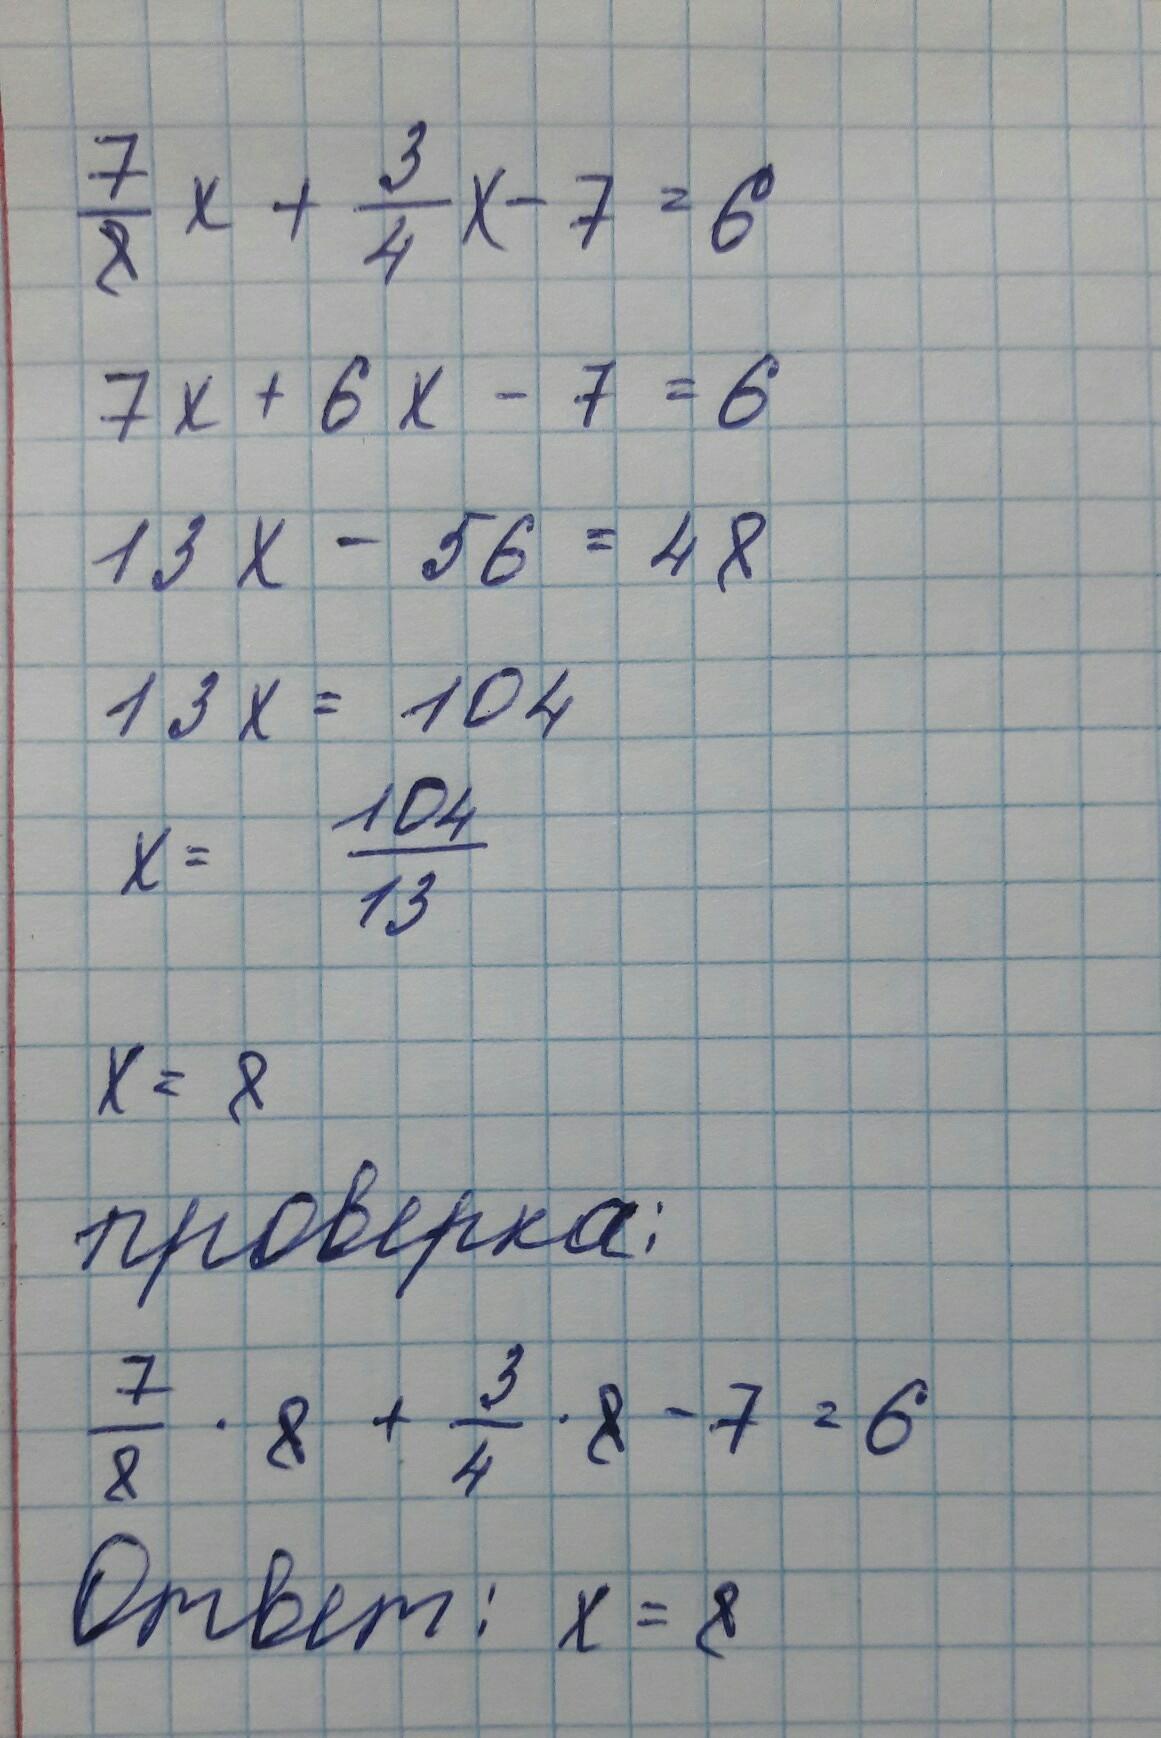 7/8 x + 3/4 x - 7 = 6
7x + 6x - 7 = 6
13x - 56 = 48
13x = 104
x = 104/13
x = 8
проверка:
7/8 · 8 + 3/4 · 8 - 7 = 6
Ответ: x = 8